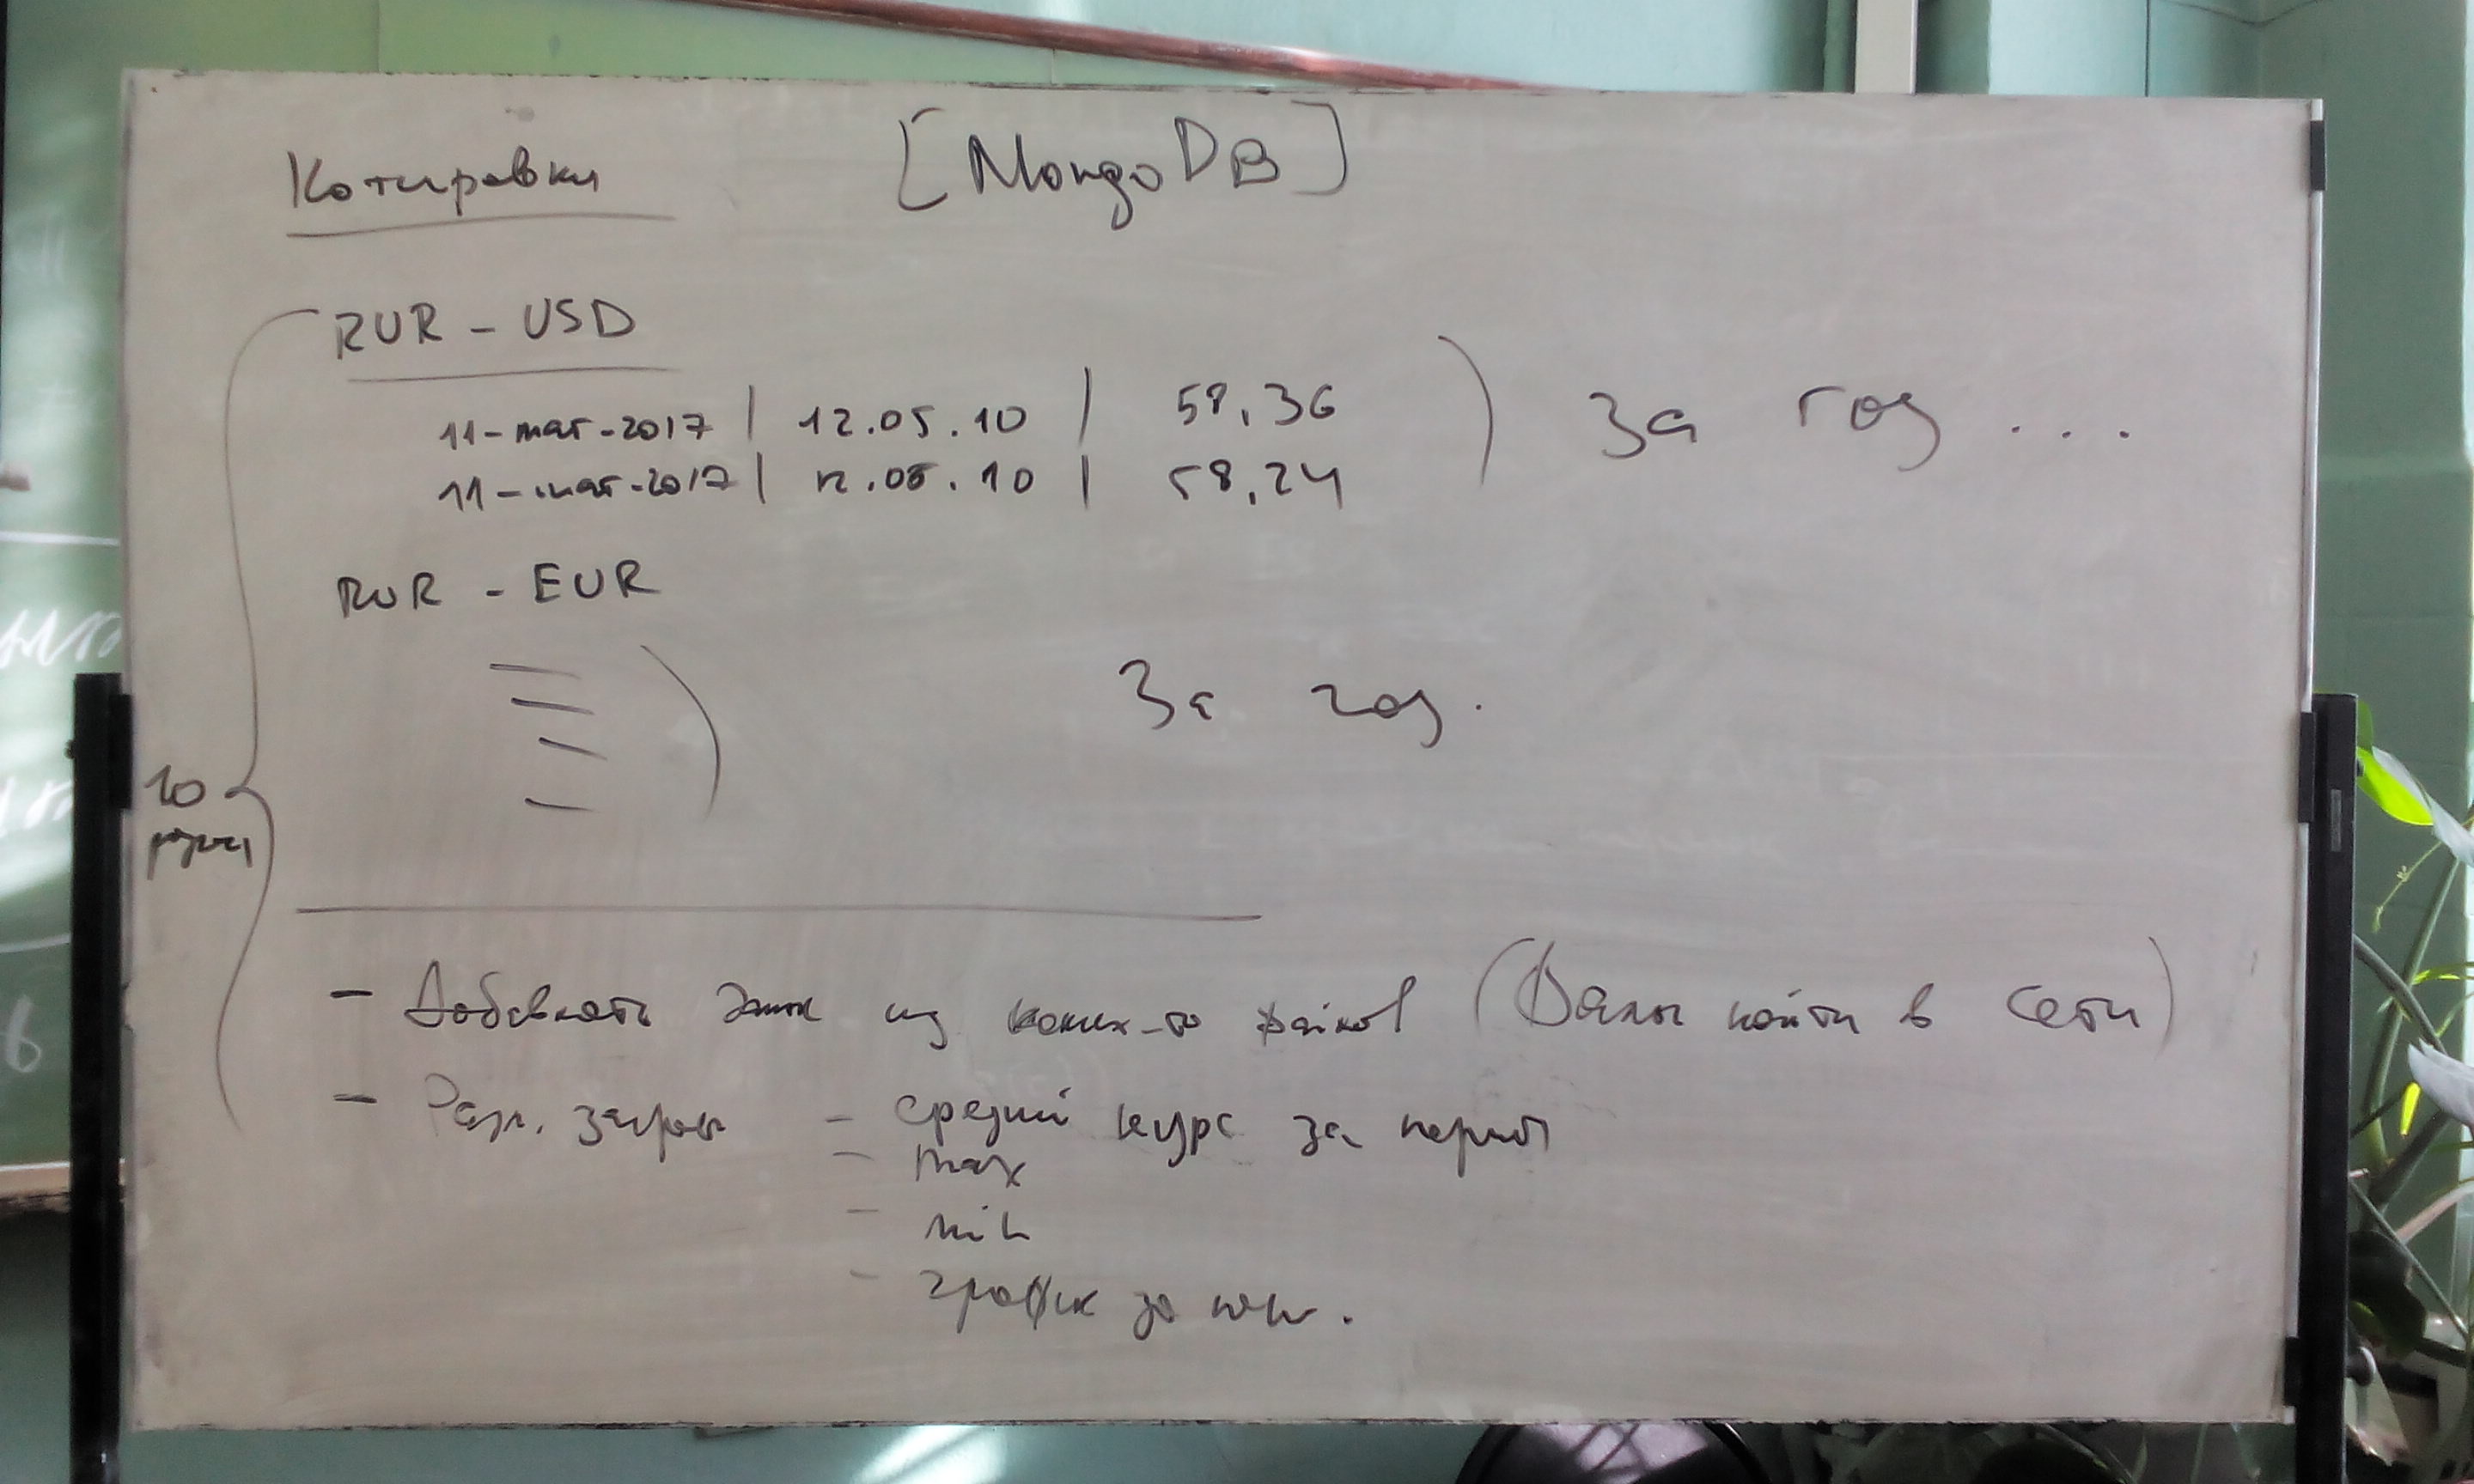 Котировки [MongoDB]
RUR - USD
11-mar-2017 | 12.05.10 | 58,36 ) за год ...
11-mar-2017 | 12.08.10 | 58,24
RUR - EUR
За год.
10
- Добавлять данные из каких-то файлов (Данные найти в сети)
- Разл. запросы - средний курс за период
- max
- min
- график за